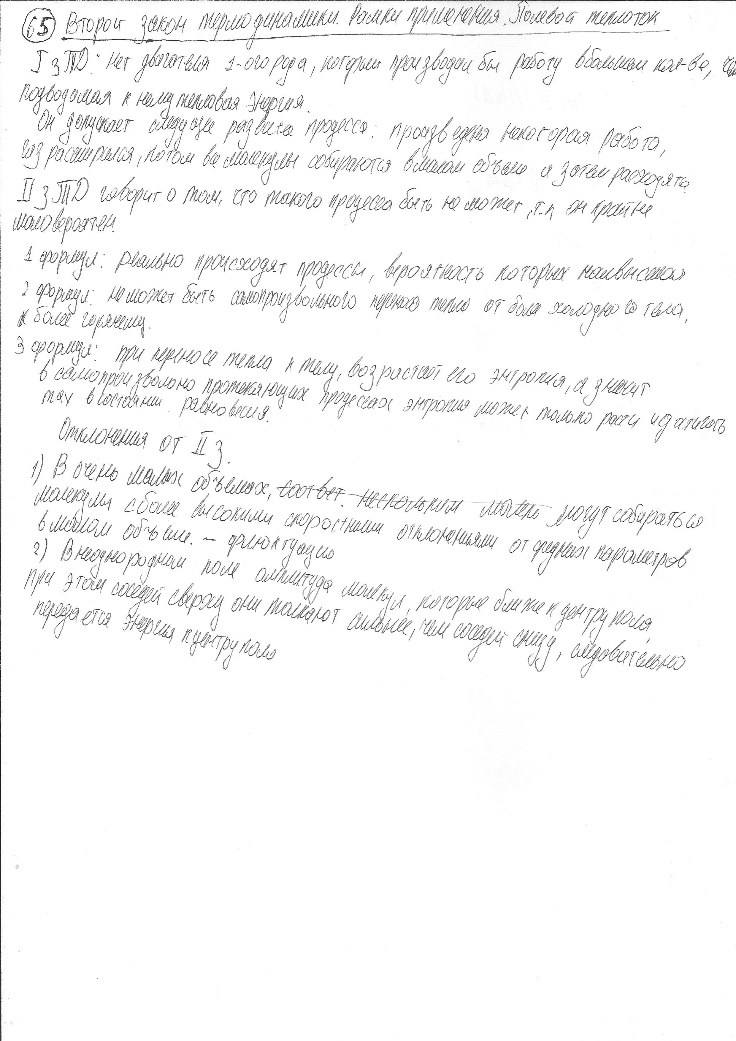 65 Второй закон термодинамики. Рамки применения. Полевой теплоток
I з ТД: Нет двигателя 1-ого рода, который производил бы работу в большем кол-ве, чем
подводимая к нему тепловая энергия.
Он допускает следующее развитие процесса: произведена некоторая работа,
газ расширился, потом все молекулы собираются в малом объеме и затем расходятся.
II з ТД говорит о том, что такого процесса быть не может, т.к. он крайне
маловероятен.
1 формул: реально происходят процессы, вероятность которых наивысшая
2 формул: не может быть самопроизвольного переноса тепла от более холодного тела,
к более горячему.
3 формул: при переносе тепла к телу, возрастает его энтропия, а значит
в самопроизвольно протекающих процессах энтропия может только расти и достигать
max в состоянии равновесия.
Отклонения от II з.
1) В очень малых объемах, соответ. нескольким могут собираться
молекулы с более высокими скоростными отклонениями от средних параметров
в малом объеме. – флюктуации
2) В неоднородном поле амплитуда молекул, которые ближе к центру поля
при этом соседей сверху они толкают сильнее, чем соседей снизу, следовательно
передается энергия к центру поля